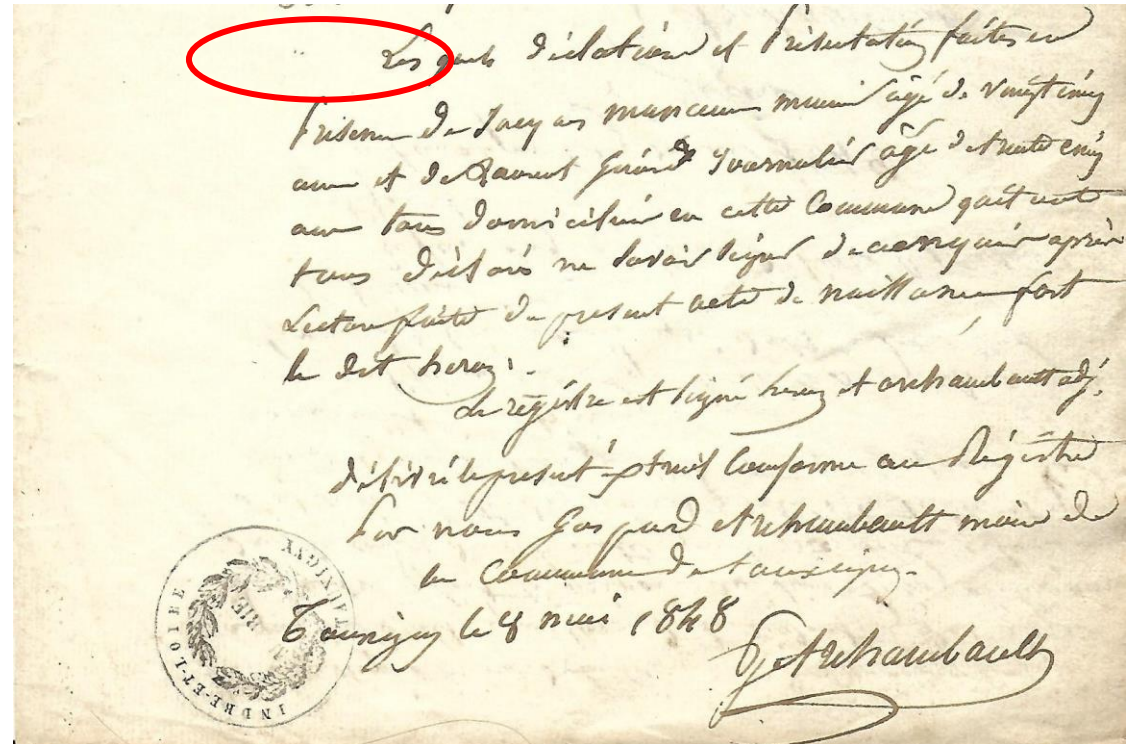 Les quels déclation et Présentation faites en
Présence de Jacques manceau age de vingt cinq
ans et de Laurent Journalier âgé de trente cinq
ans tous domicilié en cette Commune qui ont
tous déclaré ne savoir signer de ce après
Lecture faite du present acte de naissance
le dit
Le registre est signé et archambault adj.
délivré le present Conforme au Régistre
Par nous Gaspard Archambault maire de
la Commune de tauxigny.
Tauxigny le 8 mai 1848
G Archambault
TAUXIGNY
RIE
INDRE-ET-LOIRE